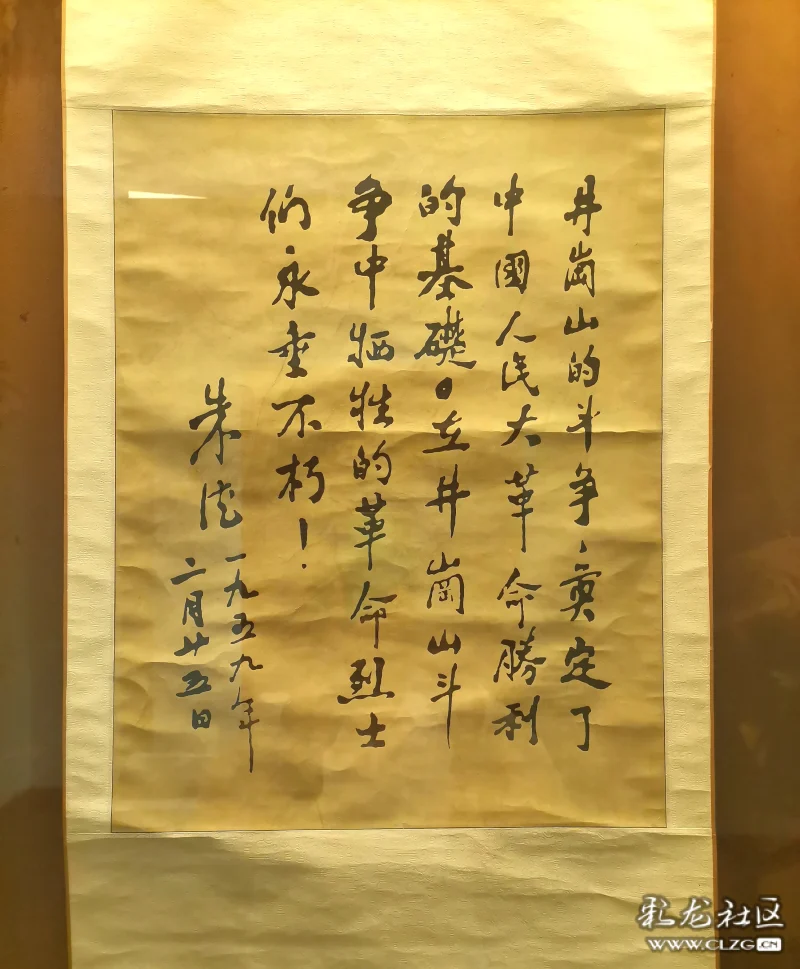 井崗山的斗争，奠定了
中國人民大革命勝利
的基礎。在井崗山斗
争中牺牲的革命烈士
们永垂不朽！
朱德
一九五九年
二月廿五日
彩龙社区
WWW.CLZG.CN